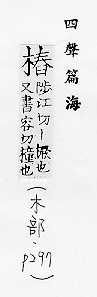 四聲篇海
樁
陟江切丨橛也
又書容切橦也
(木部·p297)